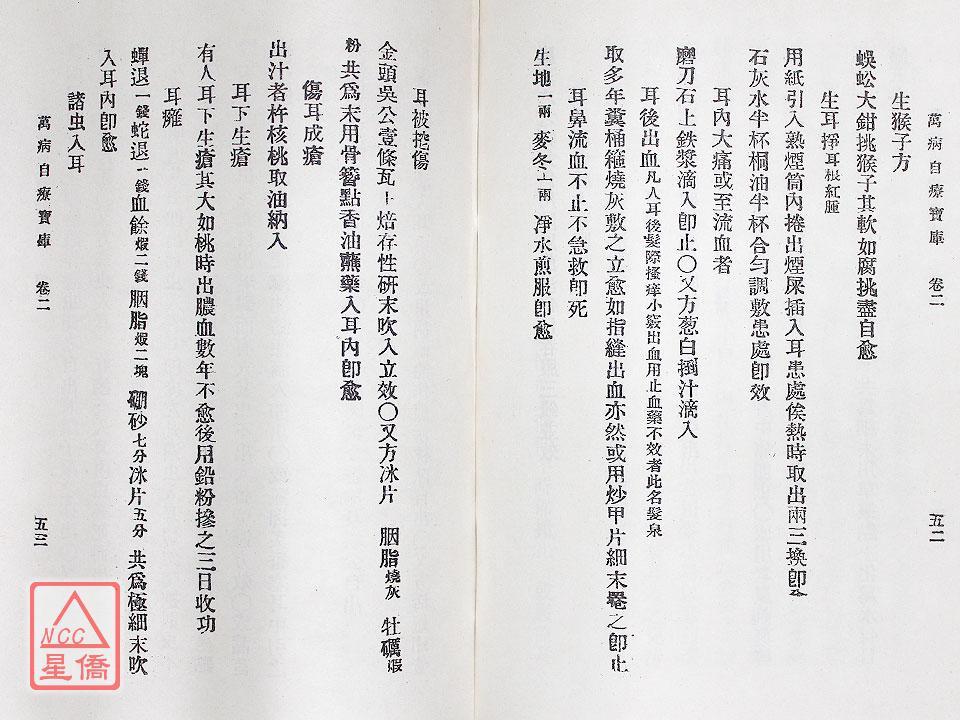 萬病自療寶庫 卷二 五二
生猴子方
蜈蚣大鉗挑猴子其軟如腐挑盡自愈
生耳挣耳根紅腫
用紙引入熟煙筒內捲出煙屎插入耳患處俟熱時取出兩三換卽愈
石灰水半杯桐油半杯合勻調敷患處卽效
耳內大痛或至流血者
磨刀石上鉄漿滴入卽止〇又方葱白搗汁滴入
耳後出血凡人耳後髮際搔痒小竅出血用止血藥不效者此名髮泉
取多年糞桶箍燒灰敷之立愈如指縫出血亦然或用炒甲片細末罨之卽止
耳鼻流血不止不急救卽死
生地一兩 麥冬二兩 凈水煎服卽愈
耳被挖傷
金頭吳公壹條瓦上焙存性研末吹入立效〇又方冰片 胭脂燒灰 牡礪煆
粉 共爲末用骨簪點香油蘸藥入耳內卽愈
傷耳成瘡
出汁者杵核桃取油納入
耳下生瘡
有人耳下生瘡其大如桃時出膿血數年不愈後用鉛粉摻之三日收功
耳癰
蟬退一錢蛇退一錢血餘煆二錢胭脂煆二塊 硼砂七分冰片五分 共爲極細末吹
入耳內卽愈
諸虫入耳
萬病自療寶庫 卷二 五三
NCC
星僑